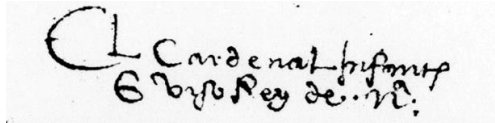 El Cardenal Infante
E Viso Rey de .. Nª.